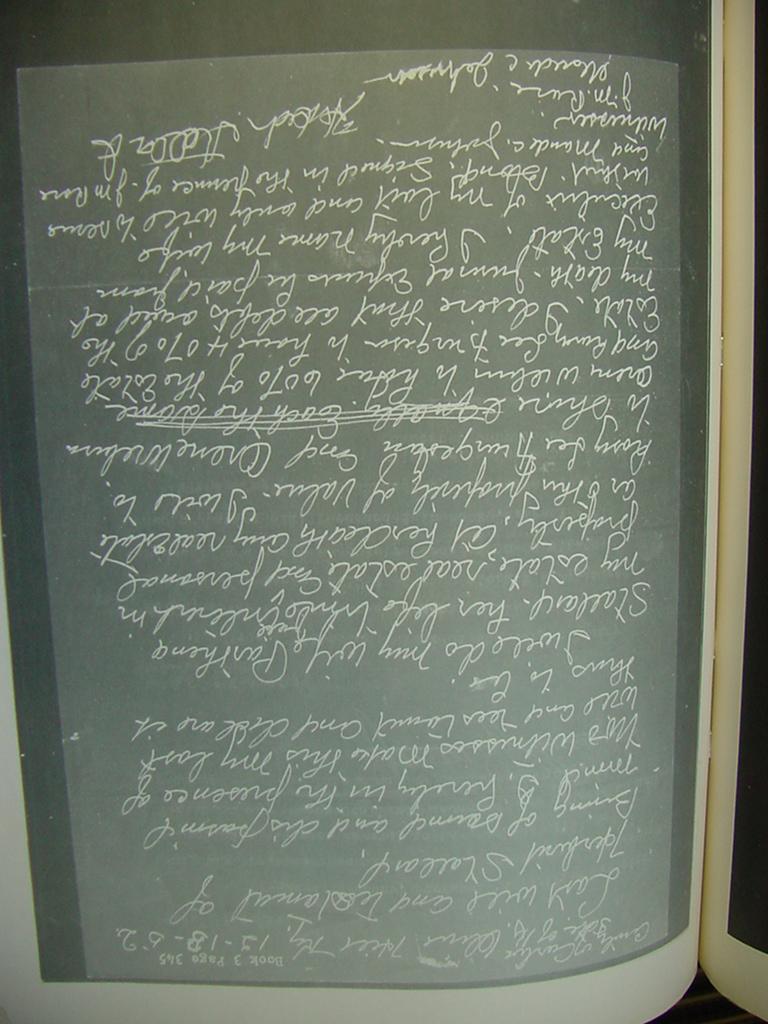 Book 3 Page 345
State of Ky, Olive Hill Ky, 12-13-52
Last will and Testament of
Herbert Stallard,
Being of sound and disposing
mind I, hereby in the presence of
two witnesses make this my last
will and testament and declare it
thus to be
I will to my wife Parthena
Stallard her life time interest in
my estate, real estate and personal
property. At her death any real estate
or other property of value. I will to
Rosy Lee Furgeson and Orene Welum
to share equall Each the same
Orene Welum to have 60% of the Estate
and Rosy Lee Furgeson to have 40% of the
Estate. I desire that all debts owed at
my death - funeral Expenses be paid from
my Estate. I hereby name my wife
Executrix of my last and only will to serve
without Bond. Signed in the presence of J m Rose
and Maude C. Johnson.
Herbert Stallard
Witnesses
J.m. Rose
Maude C Johnson